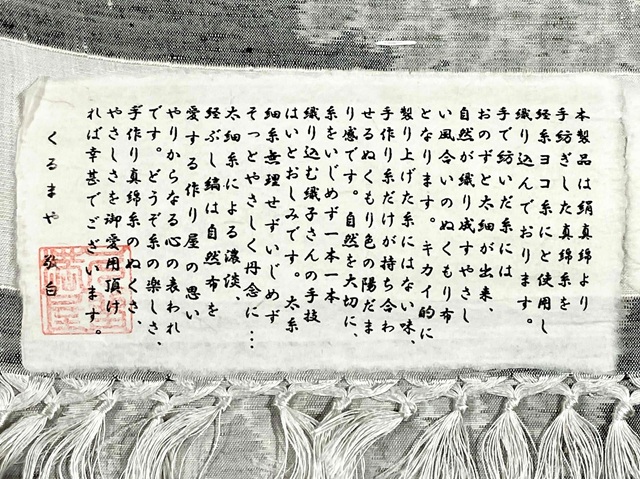 本製品は絹真綿より
手紡ぎした真綿糸を
経糸ヨコ糸にと使用し
織り込んでおります。
手で紡いだ糸には
おのずと太細が出来、
自然が織り成すやさし
い風合いのぬくもり布
となります。キカイ的に
製り上げた糸にはない味、
手作り糸だけが持ち合わ
せるぬくもり色の陽だま
り感です。自然を大切に、
糸をいじめず一本一本
織り込む織子さんの手技
はいとおしみです。太糸
細糸無理せずいじめず
そっとやさしく丹念に…
太細糸による濃倓、
経ぶし縞は自然布を
愛する作り屋の思い
やりからなる心の表われ
です。どうぞ糸の楽しさ、
手作り真綿糸のぬくさ、
やさしさを御愛用頂け
れば幸甚でございます。
くるまや 敬白